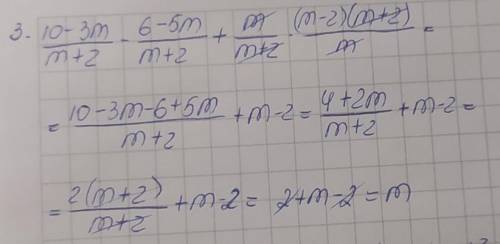 3. (10-3m)/(m+2) - (6-5m)/(m+2) + m/(m+2) · ((m-2)(m+2))/m =
= (10-3m-6+5m)/(m+2) + m-2 = (4+2m)/(m+2) + m-2 =
= (2(m+2))/(m+2) + m-2 = 2+m-2 = m